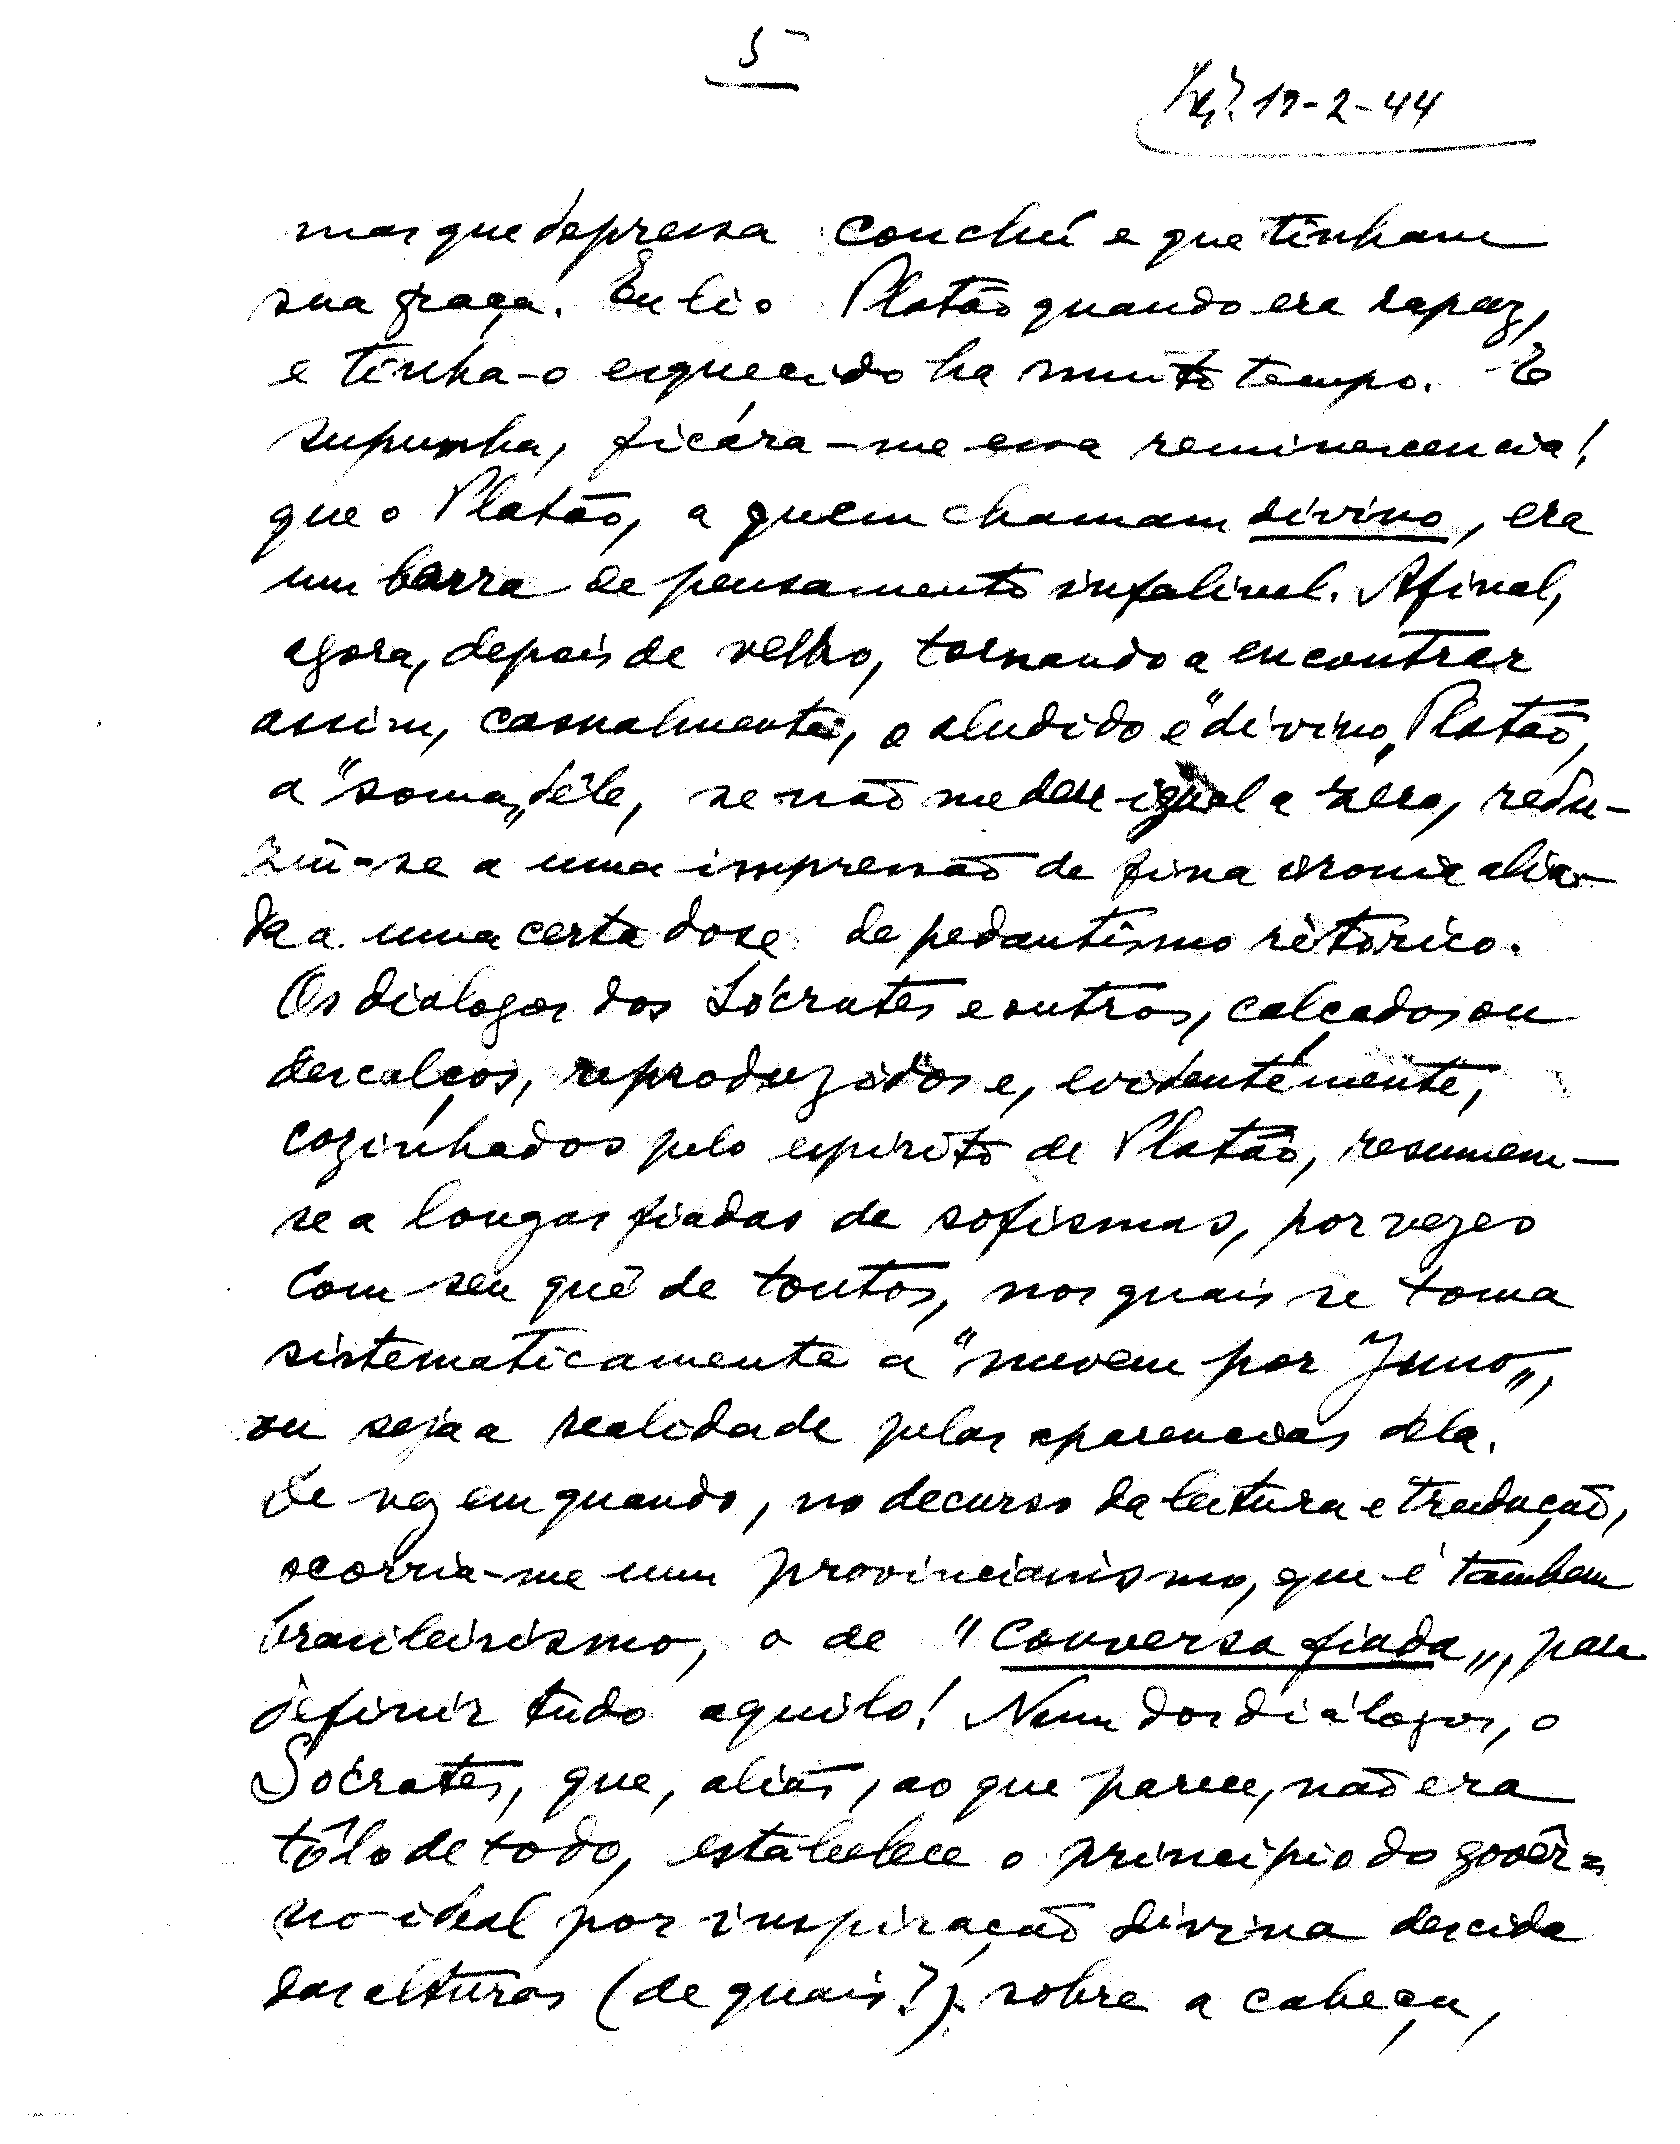 5
19-2-44
mas que depressa conclui e que tinham
sua graça. Eu li o Platão quando era rapaz,
e tinha-o esquecido ha muito tempo. E
supunha, ficára-me essa reminescencia!
que o Platão, a quem chamam divino, era
um barra de pensamento infalivel. Afinal,
agora, depois de velho, tornando a encontrar
assim, casualmente, o aludido e "divino„ Platão,
a "soma„ dêle, se não me deu igual a zero, redu-
ziu-se a uma impressão de fina ironia alia-
da a uma certa dose de pedantismo retórico.
Os dialogos dos Sócrates e outros, calçados ou
descalços, reproduzidos e, evidentemente,
cozinhados pelo espirito de Platão, resumem-
se a longas fiadas de sofismas, por vezes
com seu quê de tontos, nos quais se toma
sistematicamente a "nuvem por Juno„,
ou seja a realidade pelas aparencias dela.
De vez em quando, no decurso da leitura e tradução,
ocorria-me um provincianismo, que é tambem
brasileirismo, o de "conversa fiada„, para
definir tudo aquilo! Num dos diálogos, o
Sócrates, que, aliás, ao que parece, não era
tôlo de todo, estabelece o principio do govêr=
no ideal por inspiração divina descida
das alturas (de quais?) sobre a cabeça,